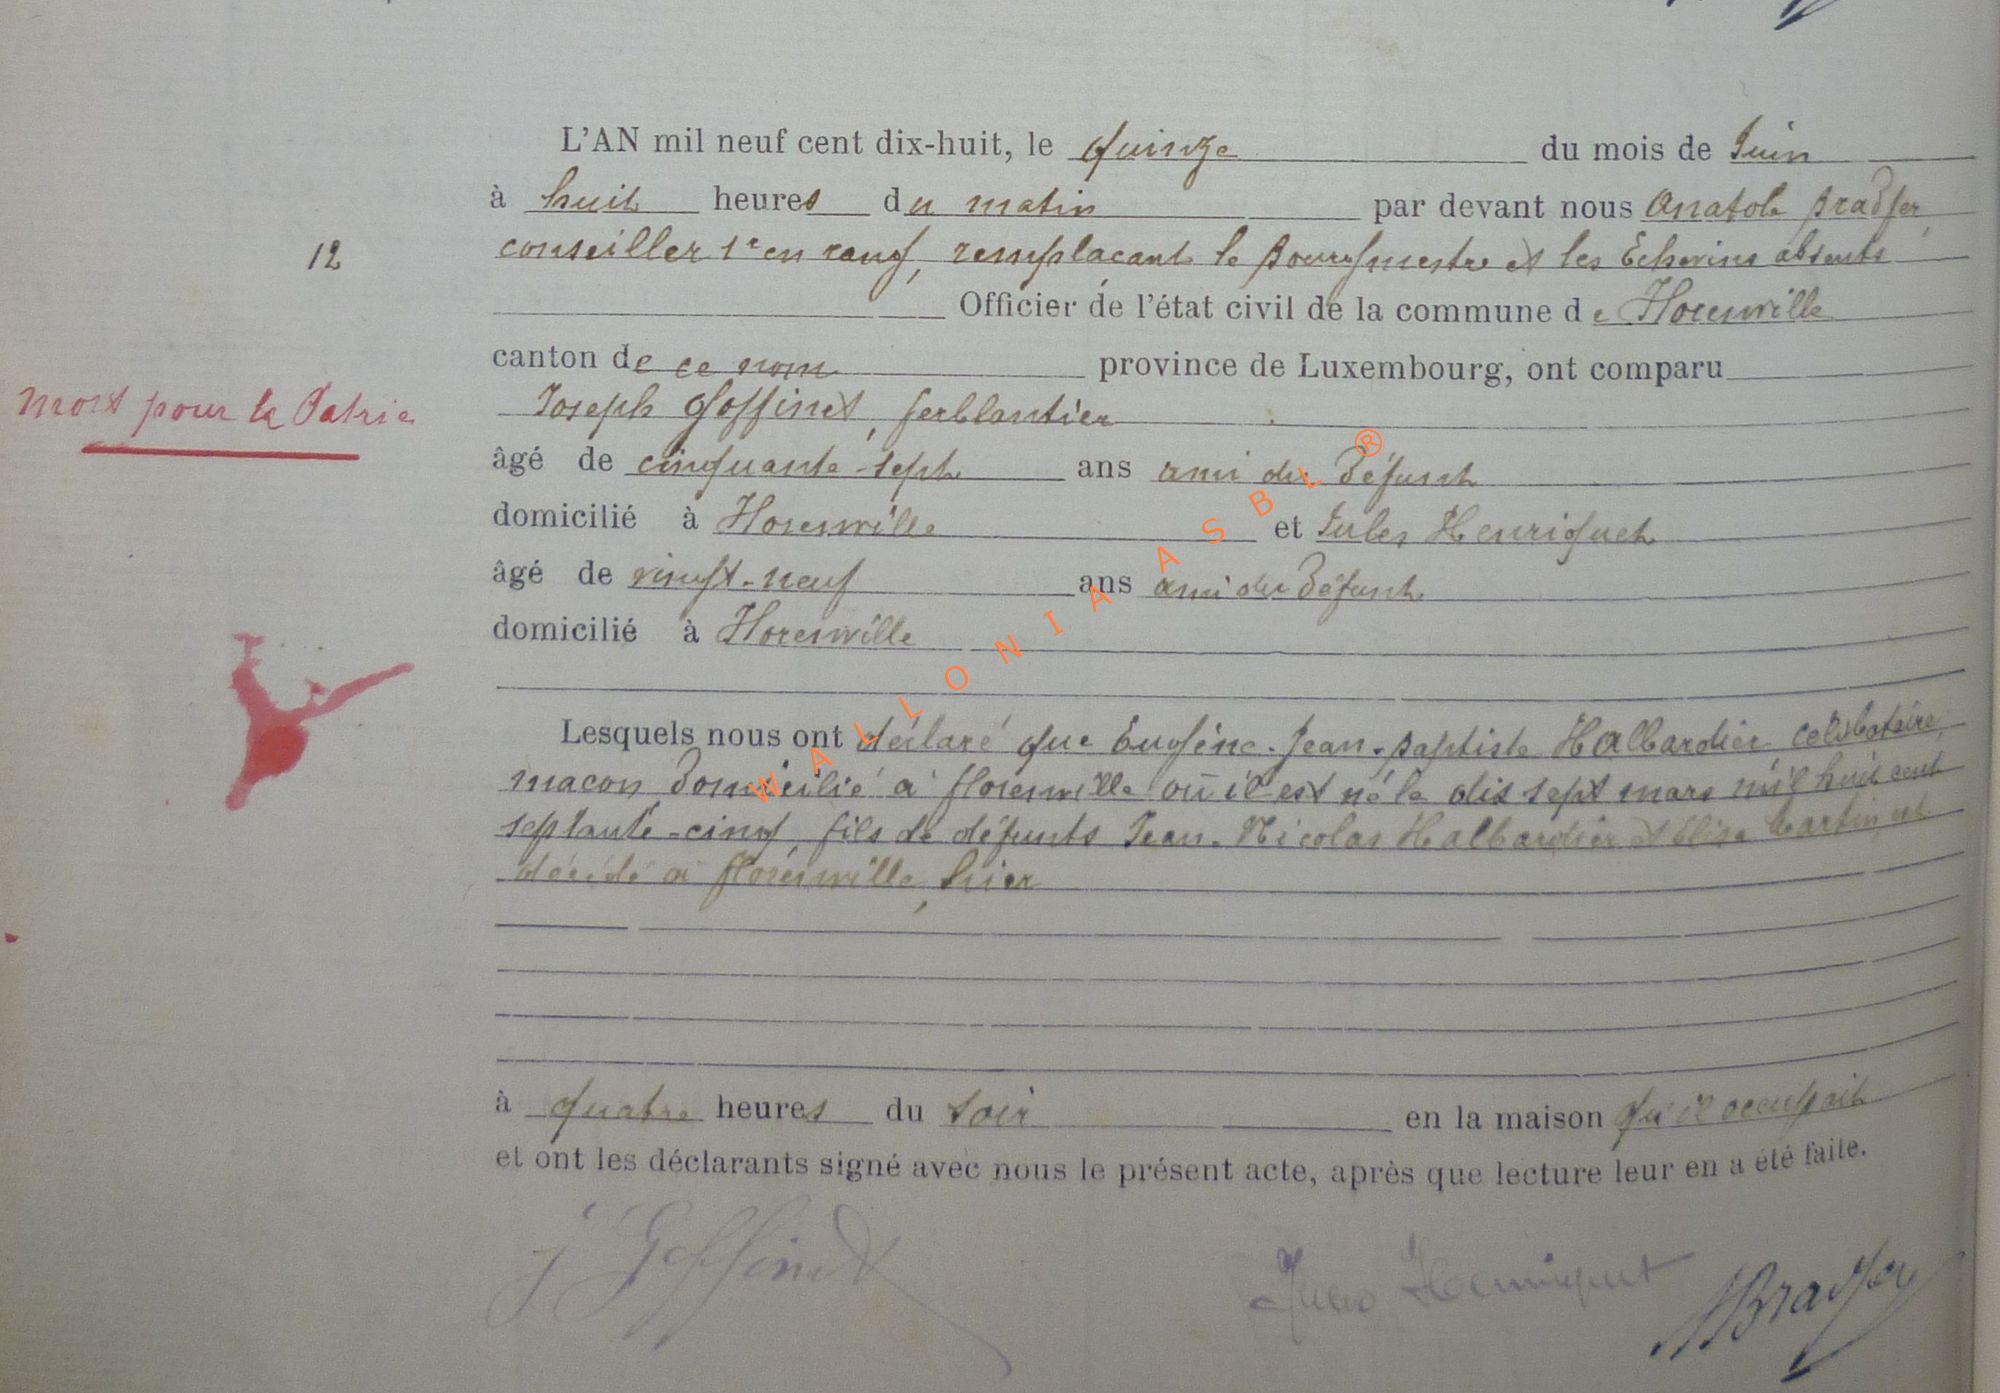 L'AN mil neuf cent dix-huit, le quinze du mois de Juin
à huit heures du matin par devant nous Anatole Bradfer,
12
conseiller 1er en rang, remplaçant le Bourgmestre et les Echevins absents
Officier de l'état civil de la commune de Florenville
canton de ce nom province de Luxembourg, ont comparu
Mort pour la Patrie
Joseph Goffinet, ferblantier
âgé de cinquante-sept ans ami du défunt
domicilié à Florenville et Jules Henriquet
âgé de vingt-neuf ans ami du défunt
domicilié à Florenville
Lesquels nous ont déclaré que Eugène-Jean-Baptiste Halbardier célibataire,
maçon domicilié à Florenville où il est né le dix sept mars mil huit cent
septante-cinq, fils de défunts Jean-Nicolas Halbardier et Elise Martin, est
décédé à Florenville, hier
à quatre heures du soir en la maison qu'il occupait
et ont les déclarants signé avec nous le présent acte, après que lecture leur en a été faite.
J Goffinet
Jules Henriquet
ABradfer
WALLONIA ASBL ®